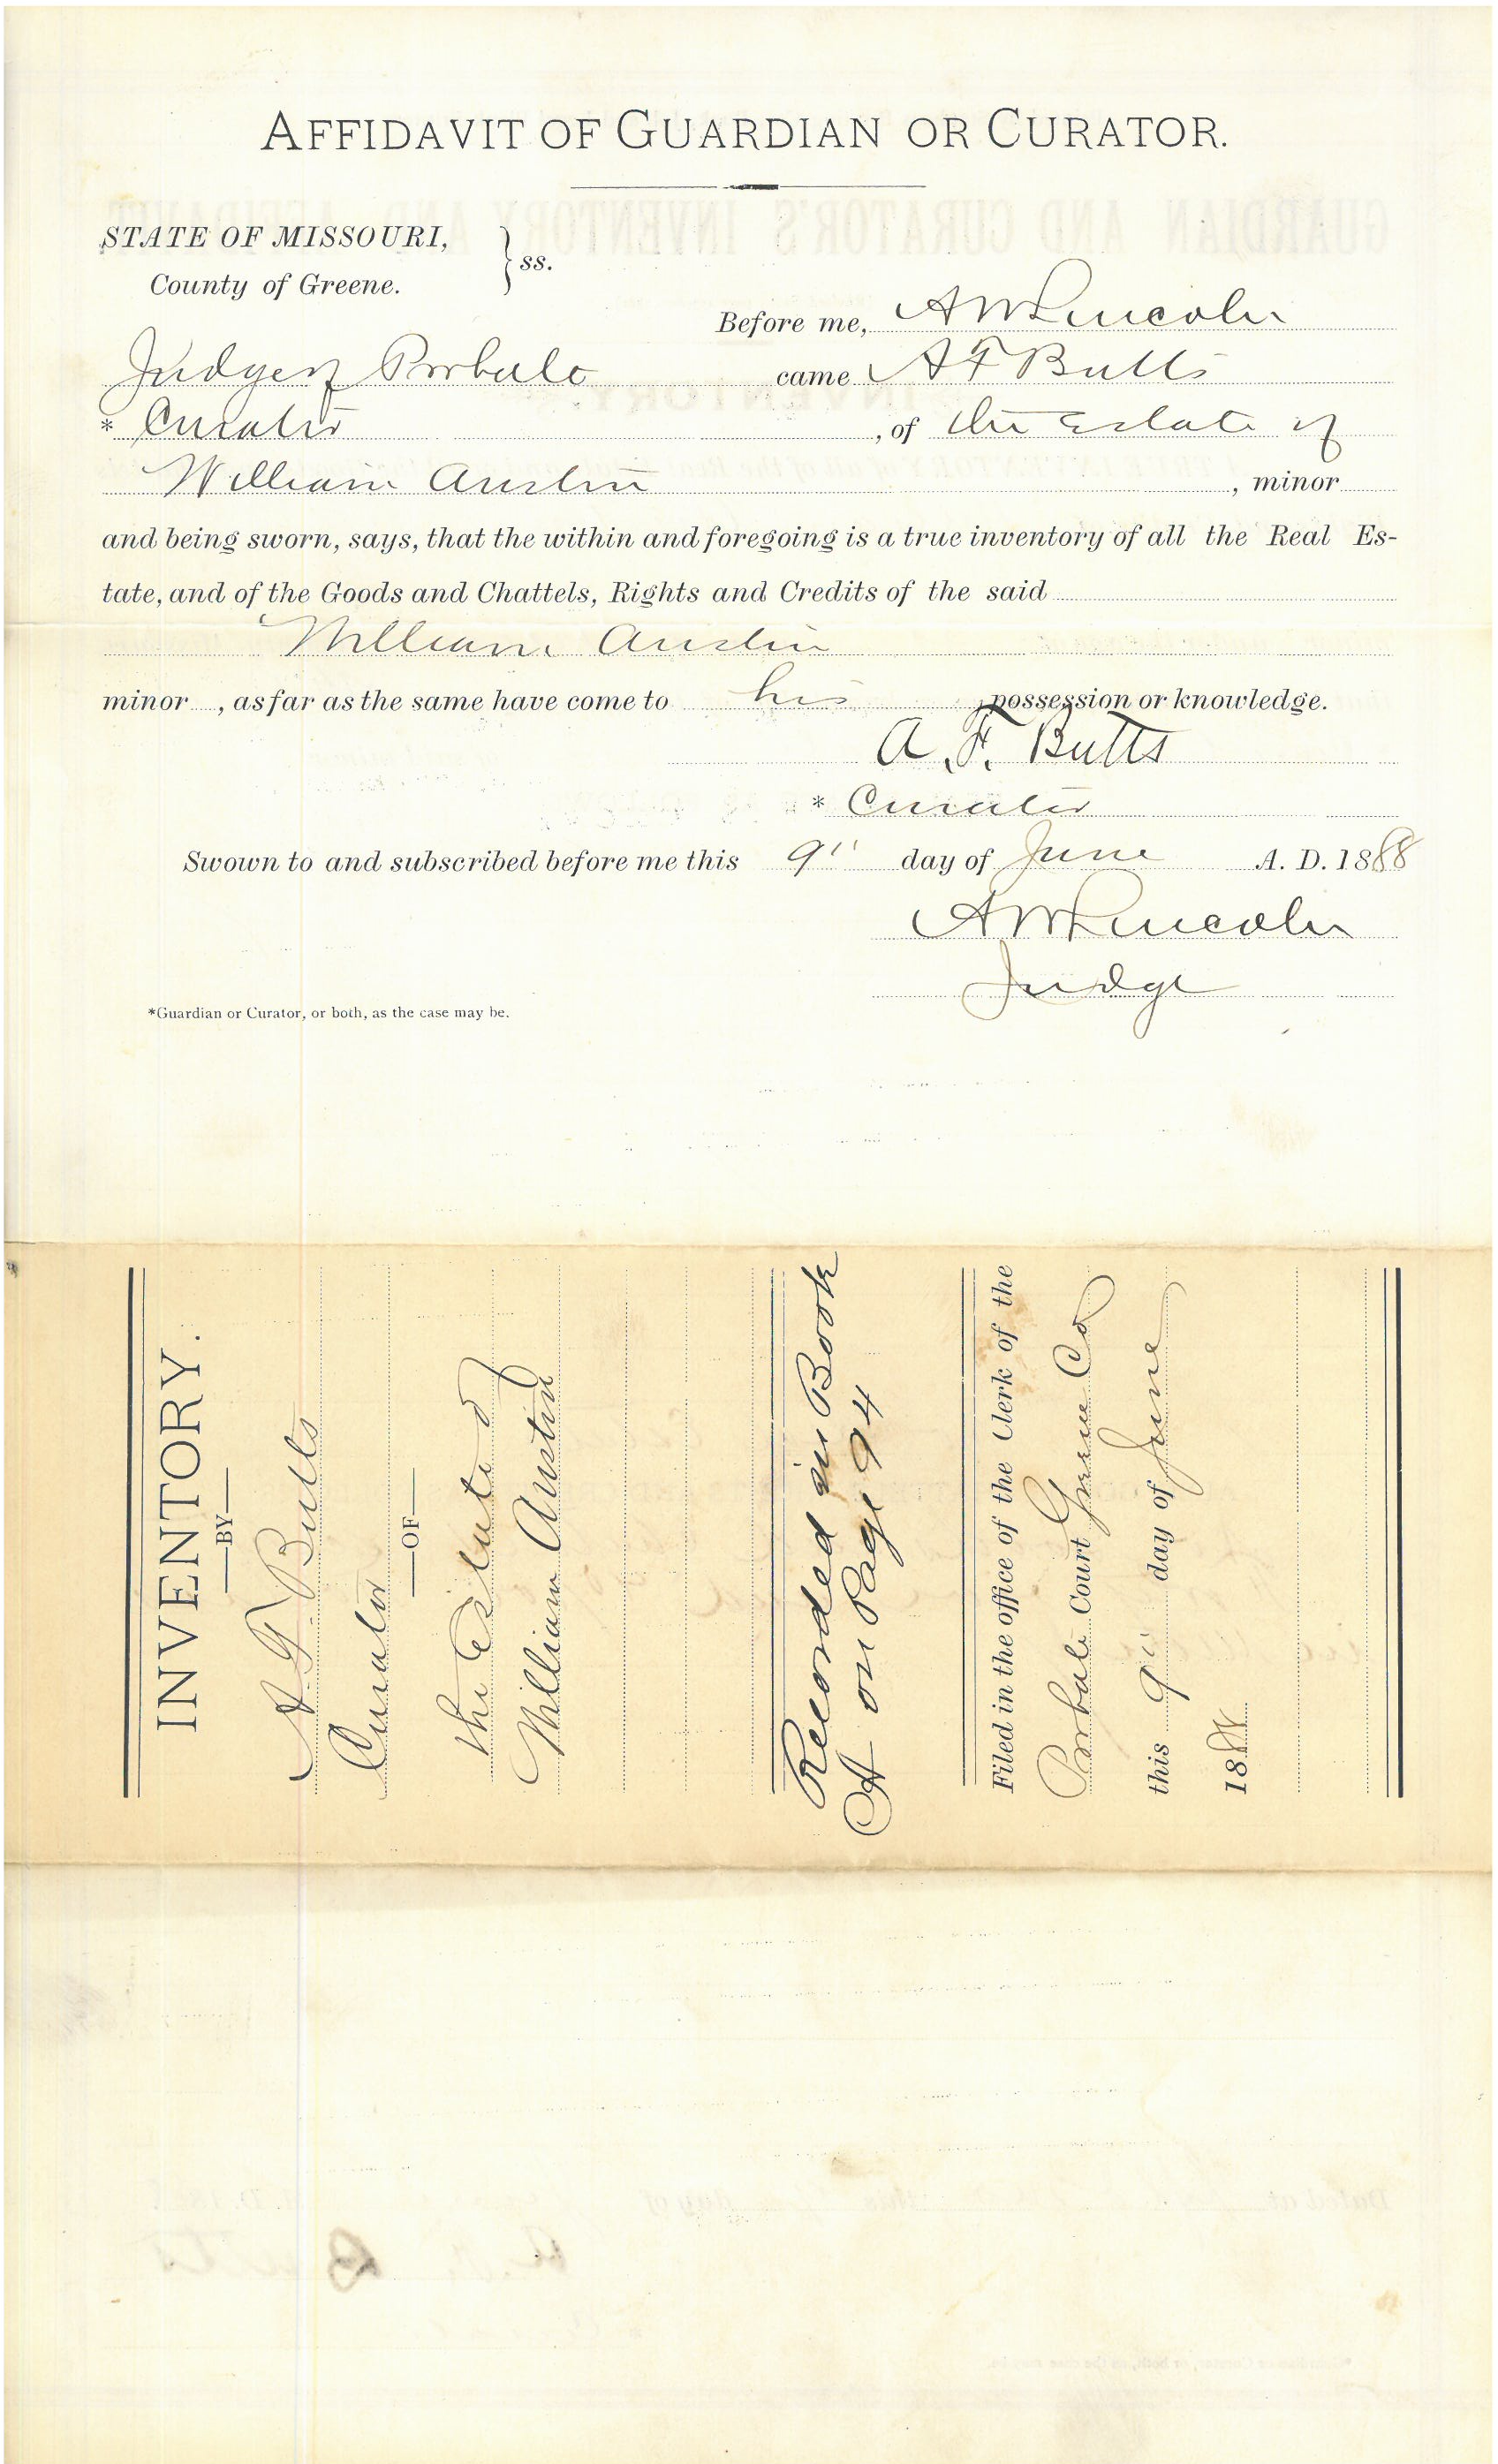 AFFIDAVIT OF GUARDIAN OR CURATOR.
STATE OF MISSOURI,
County of Greene. } ss.
Before me, A W Lincoln
Judge of Probate came A F Butts
* Curator , of the Estate of
William Austin , minor
and being sworn, says, that the within and foregoing is a true inventory of all the Real Es-
tate, and of the Goods and Chattels, Rights and Credits of the said
William Austin
minor , as far as the same have come to his possession or knowledge.
A. F. Butts
* Curator
Swown to and subscribed before me this 9" day of June A. D. 1888
A W Lincoln
Judge
*Guardian or Curator, or both, as the case may be.
INVENTORY.
—BY—
A F Butts
Curator
—OF—
the Estate of
William Austin
Recorded in Book
A on Page 94
Filed in the office of the Clerk of the
Probate Court Greene Co
this 9" day of June
1888